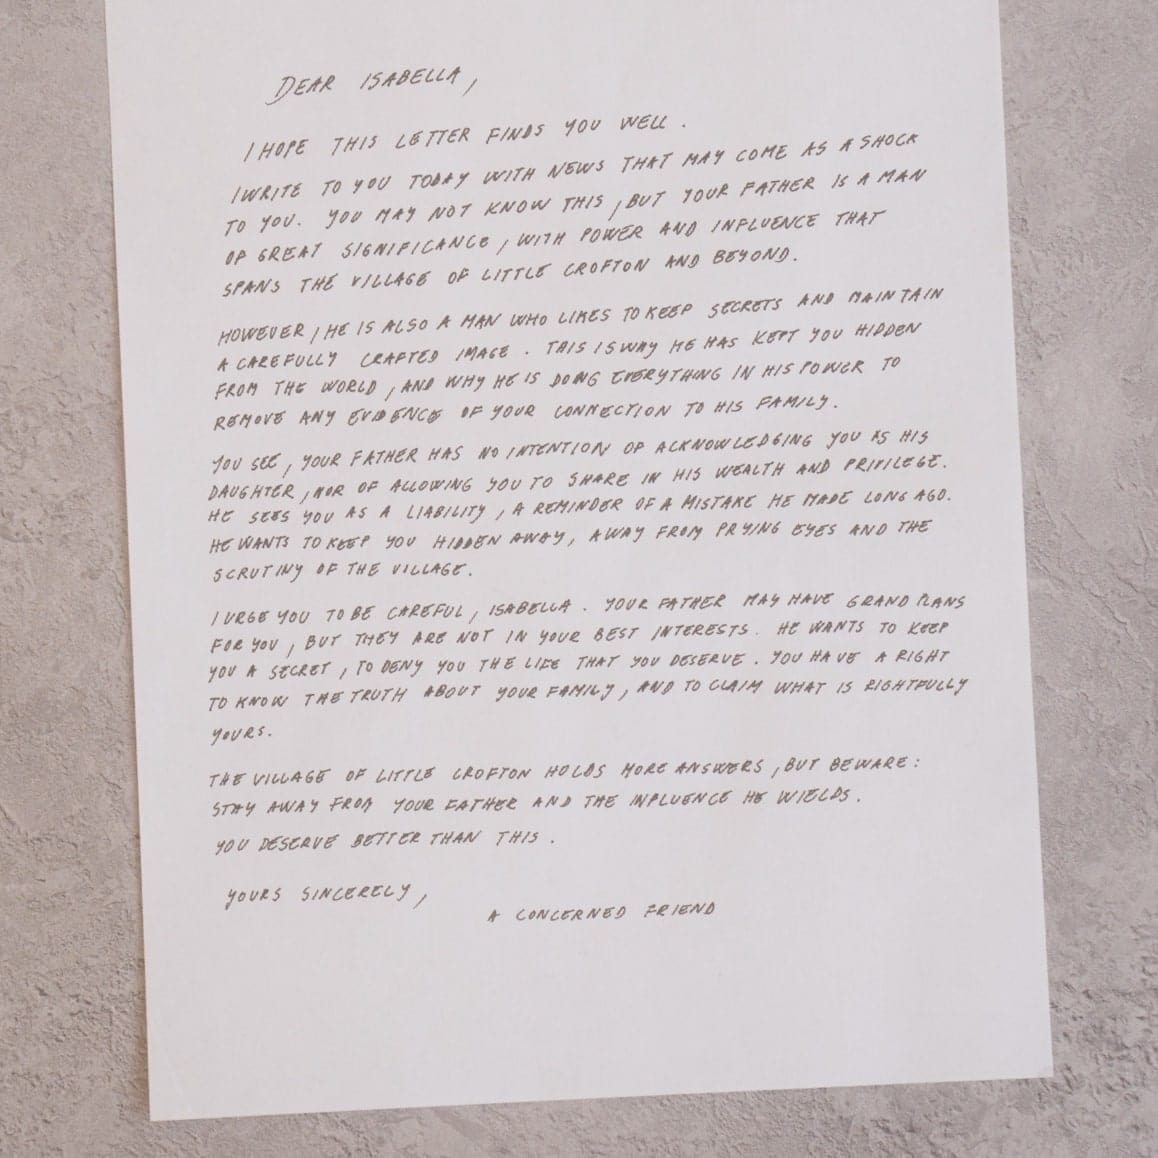 DEAR ISABELLA,
I HOPE THIS LETTER FINDS YOU WELL.
I WRITE TO YOU TODAY WITH NEWS THAT MAY COME AS A SHOCK
TO YOU. YOU MAY NOT KNOW THIS, BUT YOUR FATHER IS A MAN
OF GREAT SIGNIFICANCE, WITH POWER AND INFLUENCE THAT
SPANS THE VILLAGE OF LITTLE CROFTON AND BEYOND.
HOWEVER, HE IS ALSO A MAN WHO LIKES TO KEEP SECRETS AND MAINTAIN
A CAREFULLY CRAFTED IMAGE. THIS IS WHY HE HAS KEPT YOU HIDDEN
FROM THE WORLD, AND WHY HE IS DOING EVERYTHING IN HIS POWER TO
REMOVE ANY EVIDENCE OF YOUR CONNECTION TO HIS FAMILY.
YOU SEE, YOUR FATHER HAS NO INTENTION OF ACKNOWLEDGING YOU AS HIS
DAUGHTER, NOR OF ALLOWING YOU TO SHARE IN HIS WEALTH AND PRIVILEGE.
HE SEES YOU AS A LIABILITY, A REMINDER OF A MISTAKE HE MADE LONG AGO.
HE WANTS TO KEEP YOU HIDDEN AWAY, AWAY FROM PRYING EYES AND THE
SCRUTINY OF THE VILLAGE.
I URGE YOU TO BE CAREFUL, ISABELLA. YOUR FATHER MAY HAVE GRAND PLANS
FOR YOU, BUT THEY ARE NOT IN YOUR BEST INTERESTS. HE WANTS TO KEEP
YOU A SECRET, TO DENY YOU THE LIFE THAT YOU DESERVE. YOU HAVE A RIGHT
TO KNOW THE TRUTH ABOUT YOUR FAMILY, AND TO CLAIM WHAT IS RIGHTFULLY
YOURS.
THE VILLAGE OF LITTLE CROFTON HOLDS MORE ANSWERS, BUT BEWARE:
STAY AWAY FROM YOUR FATHER AND THE INFLUENCE HE WIELDS.
YOU DESERVE BETTER THAN THIS.
YOURS SINCERELY,
A CONCERNED FRIEND